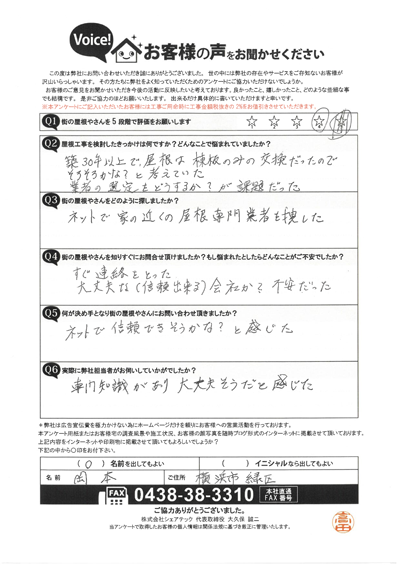 Voice!
お客様の声をお聞かせください
この度は弊社にお問い合わせいただき誠にありがとうございました。世の中には弊社の存在やサービスをご存知ないお客様が
沢山いらっしゃいます。その方たちに弊社をよく知っていただくためのアンケートにご協力いただけないでしょうか。
お客様のご意見をお聞かせいただき今後の活動に反映したいと考えております。良かったこと、嬉しかったこと、どのような些細な事
でも結構です。是非ご協力のほどお願いいたします。出来るだけ具体的に書いていただけますと幸いです。
※本アンケートにご記入いただいたお客様には工事ご用命時に工事金額総抜きの2%をお値引きさせていただきます。
Q1 街の屋根やさんを5段階で評価をお願いします
☆ ☆ ☆ ☆ ☆
Q2 屋根工事を検討したきっかけは何ですか?どんなことで悩まれていましたか?
築30年以上で屋根は棟板のみの交換だったので
そろそろかな?と考えていた
業者の選定をどうするか?が課題だった
Q3 街の屋根やさんをどのように探しましたか?
ネットで家の近くの屋根専門業者を捜した
Q4 街の屋根やさんを知りすぐにお問合せ頂けましたか?もし悩まれたとしたらどんなことがご不安でしたか?
すぐ連絡をとった
大丈夫な(信頼出来る)会社か?不安だった
Q5 何が決め手となり街の屋根やさんにお問い合わせ頂きましたか?
ネットで信頼できそうかな?と感じた
Q6 実際に弊社担当者がお伺いしていかがでしたか?
専門知識があり大丈夫そうだと感じた
*弊社は広告宣伝費を極力かけない為にホームページだけを頼りにお客様への営業活動を行っております。
本アンケート用紙またはお客様宅の調査結果や施工状況、お客様の顔写真を随時ブログ形式のインターネットに掲載させて頂いております。
上記内容をインターネットや印刷物に掲載させて頂いてもよろしいでしょうか?
下記の中から〇印をお付下さい。
(○)名前を出してもよい ( )イニシャルなら出してもよい
名前 岡本 ご住所 横浜市緑区
FAX 0438-38-3310 本社直通 FAX番号
ご協力ありがとうございました。
株式会社シェアテック 代表取締役 大久保 誠二
当アンケートで取得したお客様の個人情報は関係法規に基づき厳正に管理いたします。